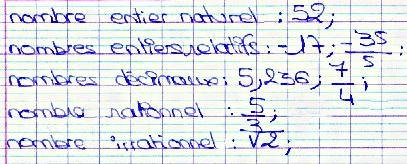 nombre entier naturel : 52;
nombres entiers relatifs : -17; -35/5;
nombres décimaux : 5,236; 7/4;
nombre rationnel : 5/3;
nombre irrationnel : √2;